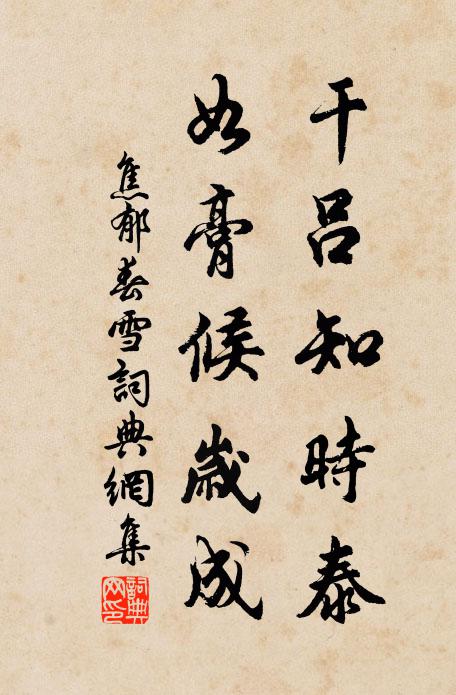 干吕知時泰
如膏候歲成
焦郁春雪詞典網集
詞典網印